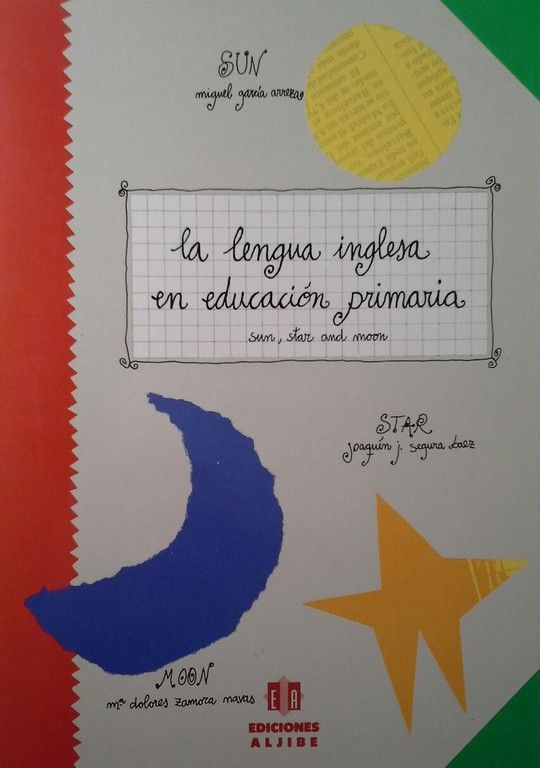 SUN
miguel garcía arreza
la lengua inglesa
en educación primaria
sun, star and moon
STAR
joaquín j. segura baez
MOON
mª dolores zamora navas
EA
EDICIONES
ALJIBE